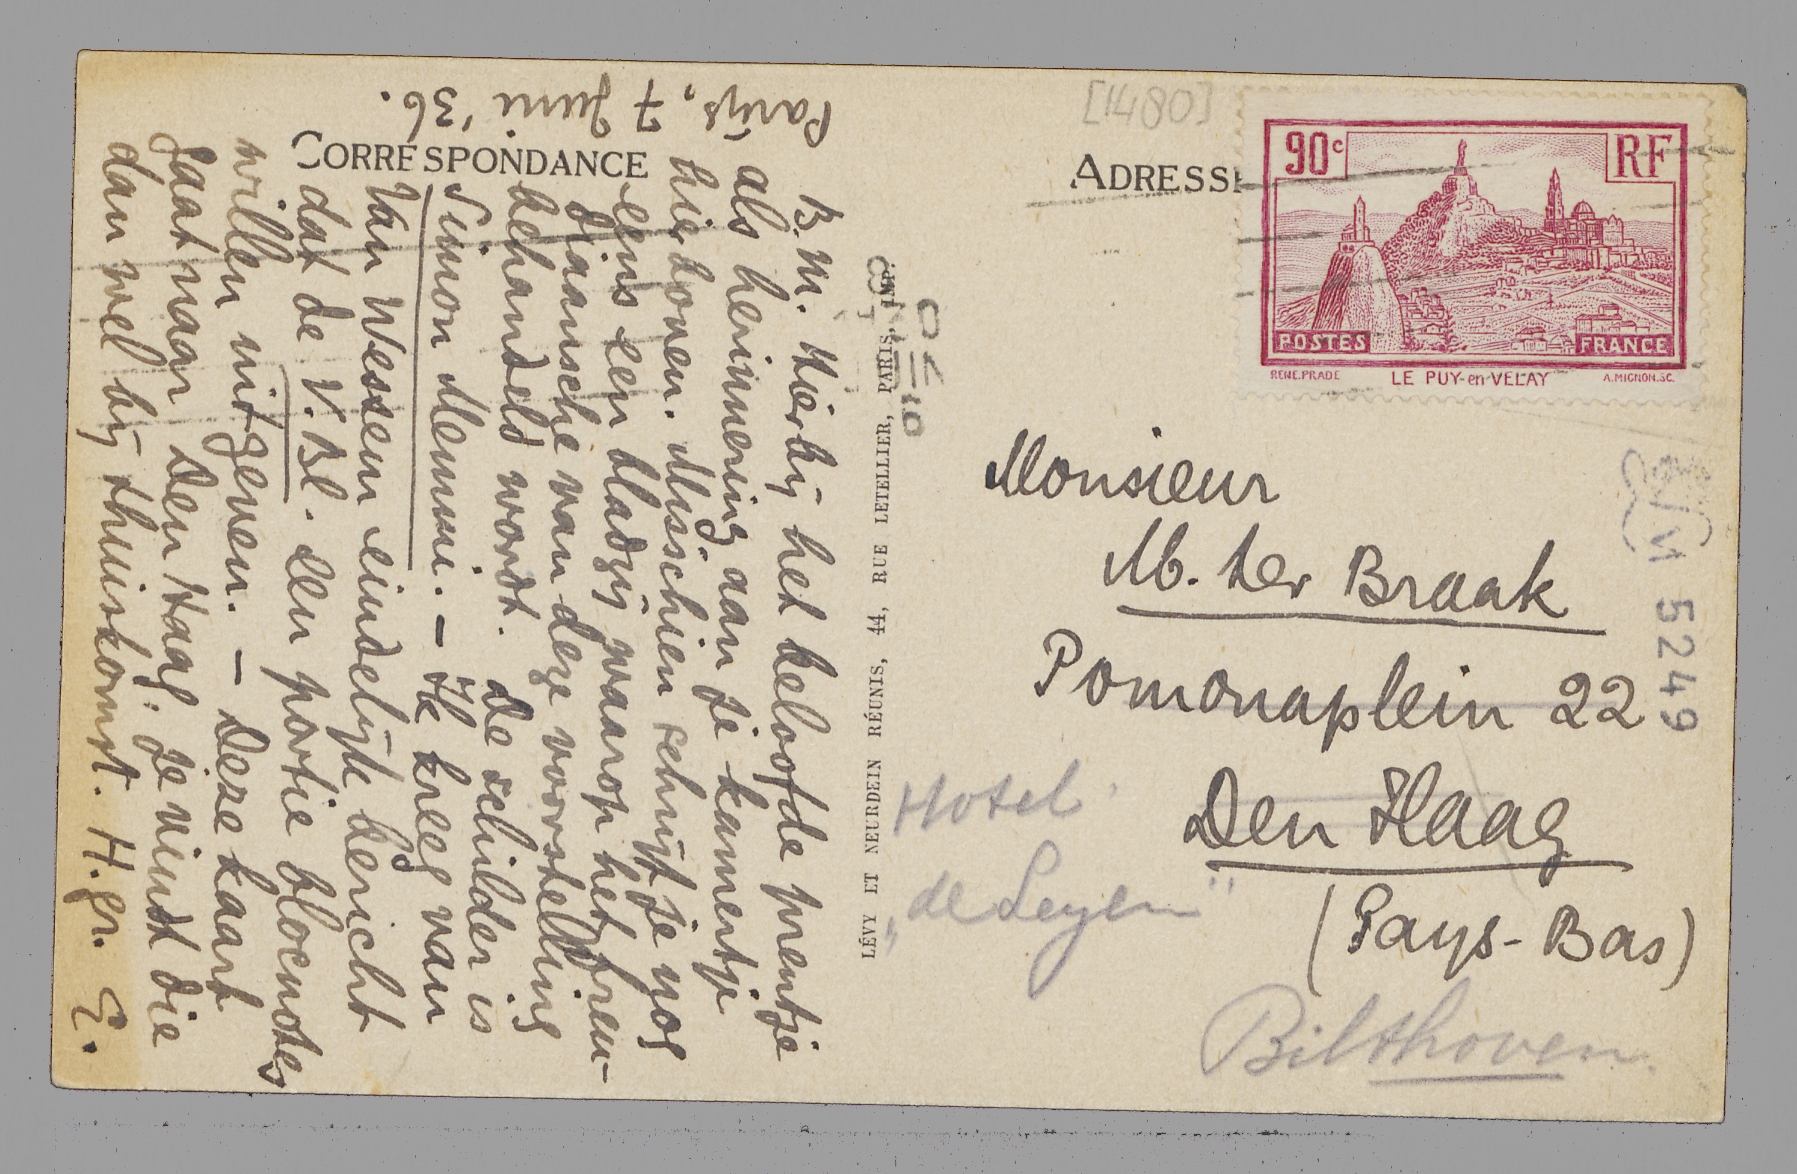 CORRESPONDANCE
Parijs, 7 Juni '36.
B. M. Hierbij het beloofde prentje
als herinnering aan je kamertje
hierboven. Misschien schrijf je nog
eens een bladzij waarop het freu-
diaansche van deze voorstelling
behandeld wordt. De schilder is
Simon Memmi. – Ik kreeg van
Van Wessem eindelijk bericht
dat de V. Bl. een portie blocnotes
willen uitgeven. – Deze kaart
gaat naar Den Haag, je vindt die
dan wel bij thuiskomst. H. gr. E.
LÉVY ET NEURDEIN RÉUNIS, 44, RUE LETELLIER, PARIS. IMP.
[1480]
ADRESSE
90c
RF
POSTES
FRANCE
RENE.PRADE
LE PUY-en-VELAY
A.MIGNON.SC.
Monsieur
M. ter Braak
Pomonaplein 22
Den Haag
(Pays-Bas)
Hotel
„de Leyen"
Bilthoven.
5249